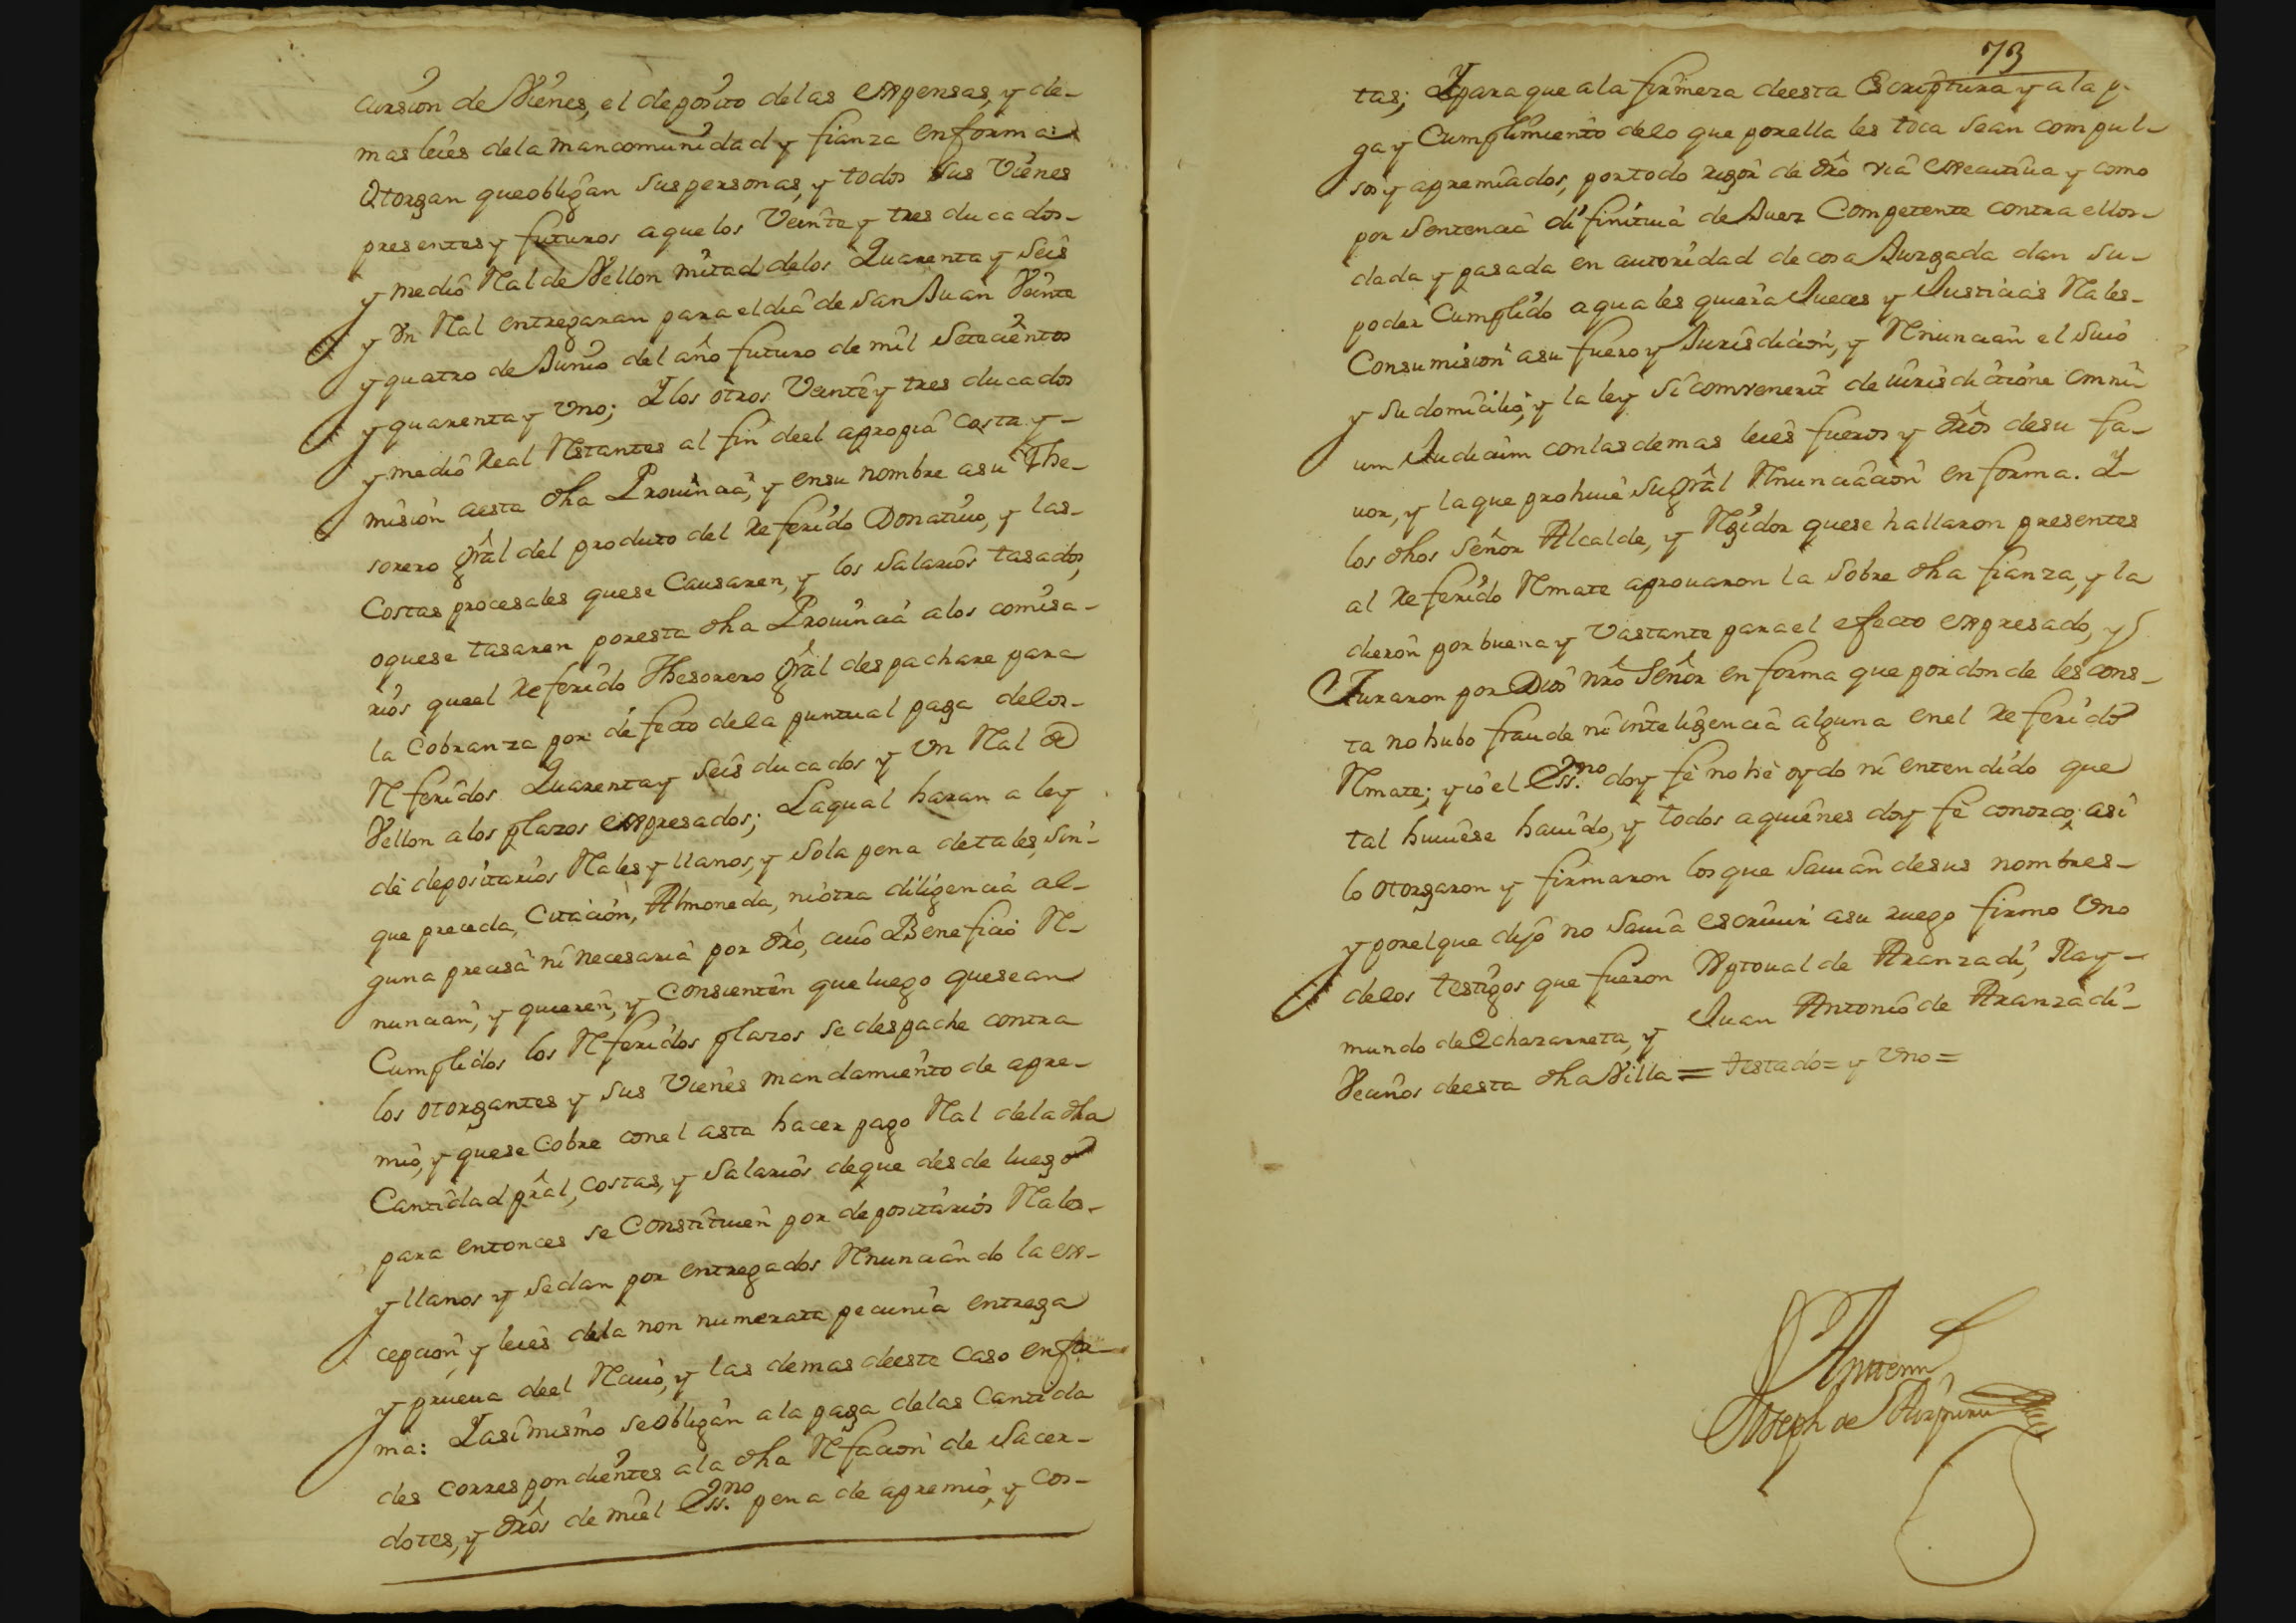 cursion de Vienes, el deposito delas expensas, y de-
mas leies dela mancomunidad y fianza en forma:
Otorgan que obligan sus personas, y todos sus Vienes
presentes y futuros a que los Veinte y tres ducados-
y medio Ral de Vellon mitad delos Quarenta y Seis
y Un Ral entregaran para el dia de San Juan Veinte
y quatro de Junio del año futuro de mil Setecientos
y quarenta y Uno; Y los otros Veinte y tres ducados
y medio Real Restantes al fin deel apropia costa y-
mision aesta dha Prouincia, y ensu nombre asu The-
sorero Grâl del producto del Referido Donatiuo, y las-
Costas procesales quese Causaren, y los Salarios tasados,
oquese tasaren poresta dha Prouincia alos comisa-
rios queel Referido Thesorero Grâl despachare para
la Cobranza por defecto dela puntual paga delos-
Referidos Quarenta y Seis ducados y Un Ral de
Vellon alos plazos expresados; Laqual haran a ley
de depositarios Rales y llanos, y Sola pena detales, Sin-
que preceda, Citacion, Almoneda, niotra diligencia al-
guna precisa ni necesaria por dro, cuio Beneficio Re-
nuncian, y quieren, y consienten que luego quesean
Cumplidos los Referidos plazos se despache contra
los otorgantes y sus Vienes mandamiento de apre-
mio, y quese Cobre conel asta hacer pago Ral dela dha
Cantidad prâl, costas, y Salarios deque desde luego
para entonces se Constituien por depositarios Rales-
y llanos y sedan por entregados Renunciando la ex-
cepcion y leies dela non numerata pecunia entrega
y prueua deel Reciuo, y las demas deeste caso enfor-
ma: Yasimismo se obligan ala paga delas Cantida
des correspondientes ala dha Refacion de Sacer-
dotes, y drôs de miel Ess.no pena de apremio, y cos-
73
tas; Y para que ala firmeza deesta Escriptura y ala p-
ga y Cumplimiento delo que porella les toca Sean compul-
sos y apremiados, portodo rigor de drô via executiua y como
por Sentencia difinitiua de Juez Competente contra ellos-
dada y pasada en autoridad de cosa Juzgada dan Su-
poder Cumplido aquales quiera Jueces y Justicias Rales-
Consumision asu fuero y Jurisdicion, y Renuncian el Suio
y su domicilio, y la ley Si convenerit de iurisdictione omni-
um Judicum conlasdemas leies fueros y drôs desu fa-
uor, y laque prohiue sugrâl Renunciacion en forma. Y
los dhos Señor Alcalde, y Regidor quese hallaron presentes
al Referido Remate aprouaron la Sobre dha fianza, y la
dieron por buena y Vastante parael efecto expresado, y
Juraron por Dios nrô Señor en forma que pordonde les cons-
ta no hubo fraude ni inteligencia alguna enel Referido
Remate; y io el Ess.no doy fè no hè oydo ni entendido que
tal huuiese hauido, y todos aquienes doy fè conozco, asi
lo otorgaron y firmaron losque Sauian desus nombres-
y porelque dijo no Sauia escriuir asu ruego firmo Uno
delos testigos que fueron Xptoual de Aranzadi, Ray-
mundo de Echazarreta, y Juan Antonio de Aranzadi-
Vecinos deesta dha Villa = testado = y Uno =
Antemi
Joseph de